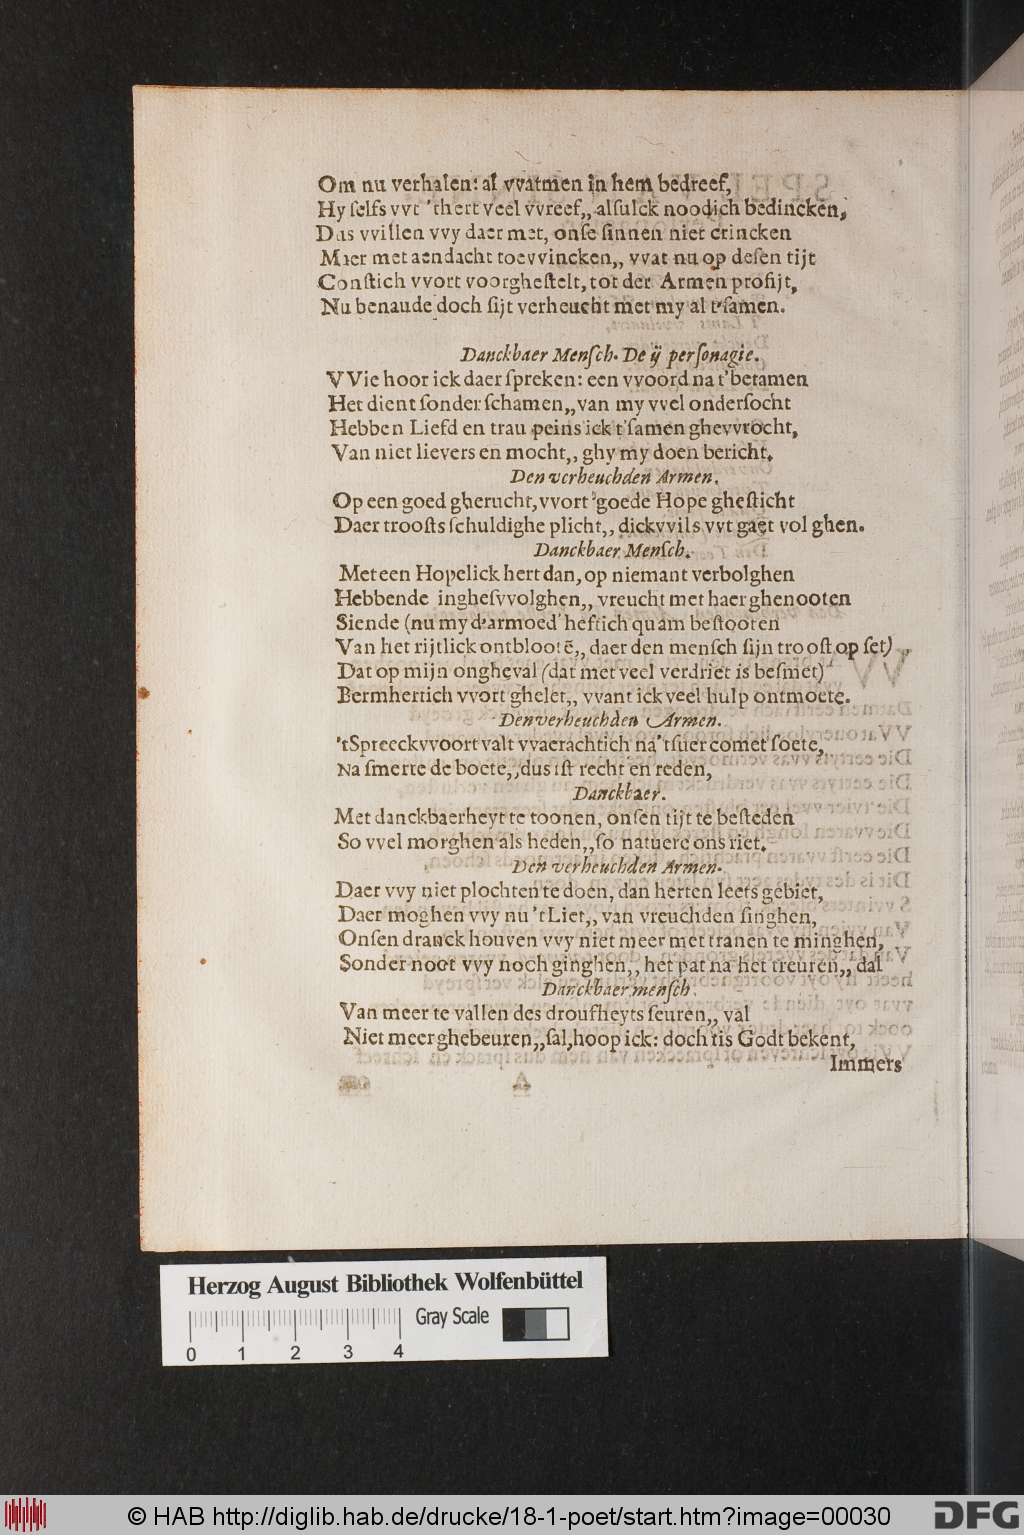 Om nu verhalen: al vvatmen in hem bedreef,
Hy ſelfs vvt 'thert veel vvreef,, alſulck noodich bedincken,
Das vvillen vvy daer met, onſe ſinnen niet crincken
Maer met aendacht toevvincken,, vvat nu op deſen tijt
Conſtich vvort voorgheſtelt, tot der Armen profijt,
Nu benaude doch ſijt verheucht met my al t'ſamen.
Danckbaer Menſch. De ij perſonagie.
VVie hoor ick daer ſpreken: een vvoord na t'betamen
Het dient ſonder ſchamen,, van my vvel onderſocht
Hebben Liefd en trau peins ick t'ſamen ghevvrocht,
Van niet lievers en mocht,, ghy my doen bericht.
Den verheuchden Armen.
Op een goed gherucht, vvort 'goede Hope gheſticht
Daer trooſts ſchuldighe plicht,, dickvvils vvt gaet vol ghen.
Danckbaer Menſch.
Met een Hopelick hert dan, op niemant verbolghen
Hebbende ingheſvvolghen,, vreucht met haer ghenooten
Siende (nu my d'armoed' heftich quam beſtooten
Van het rijtlick ontblootē,, daer den menſch ſijn trooſt op ſet)
Dat op mijn ongheval (dat met veel verdriet is beſmet)
Bermhertich vvort ghelet,, vvant ick veel hulp ontmoete.
Den verheuchden Armen.
'tSpreeckvvoort valt vvaerachtich na 'tſuer comet ſoete,
Na ſmerte de boete,, dus iſt recht en reden,
Danckbaer.
Met danckbaerheyt te toonen, onſen tijt te beſteden
So vvel morghen als heden,, ſo natuere ons riet.
Den verheuchden Armen.
Daer vvy niet plochten te doen, dan herten leets gebiet,
Daer moghen vvy nu 't Liet,, van vreuchden ſinghen,
Onſen dranck houven vvy niet meer met tranen te minghen,
Sonder noot vvy noch ginghen,, het pat na het treuren,, dal
Danckbaer menſch.
Van meer te vallen des droufheyts ſeuren,, val
Niet meer ghebeuren,, ſal, hoop ick: doch tis Godt bekent,
Immers
Herzog August Bibliothek Wolfenbüttel
Gray Scale
0 1 2 3 4
© HAB http://diglib.hab.de/drucke/18-1-poet/start.htm?image=00030
DFG